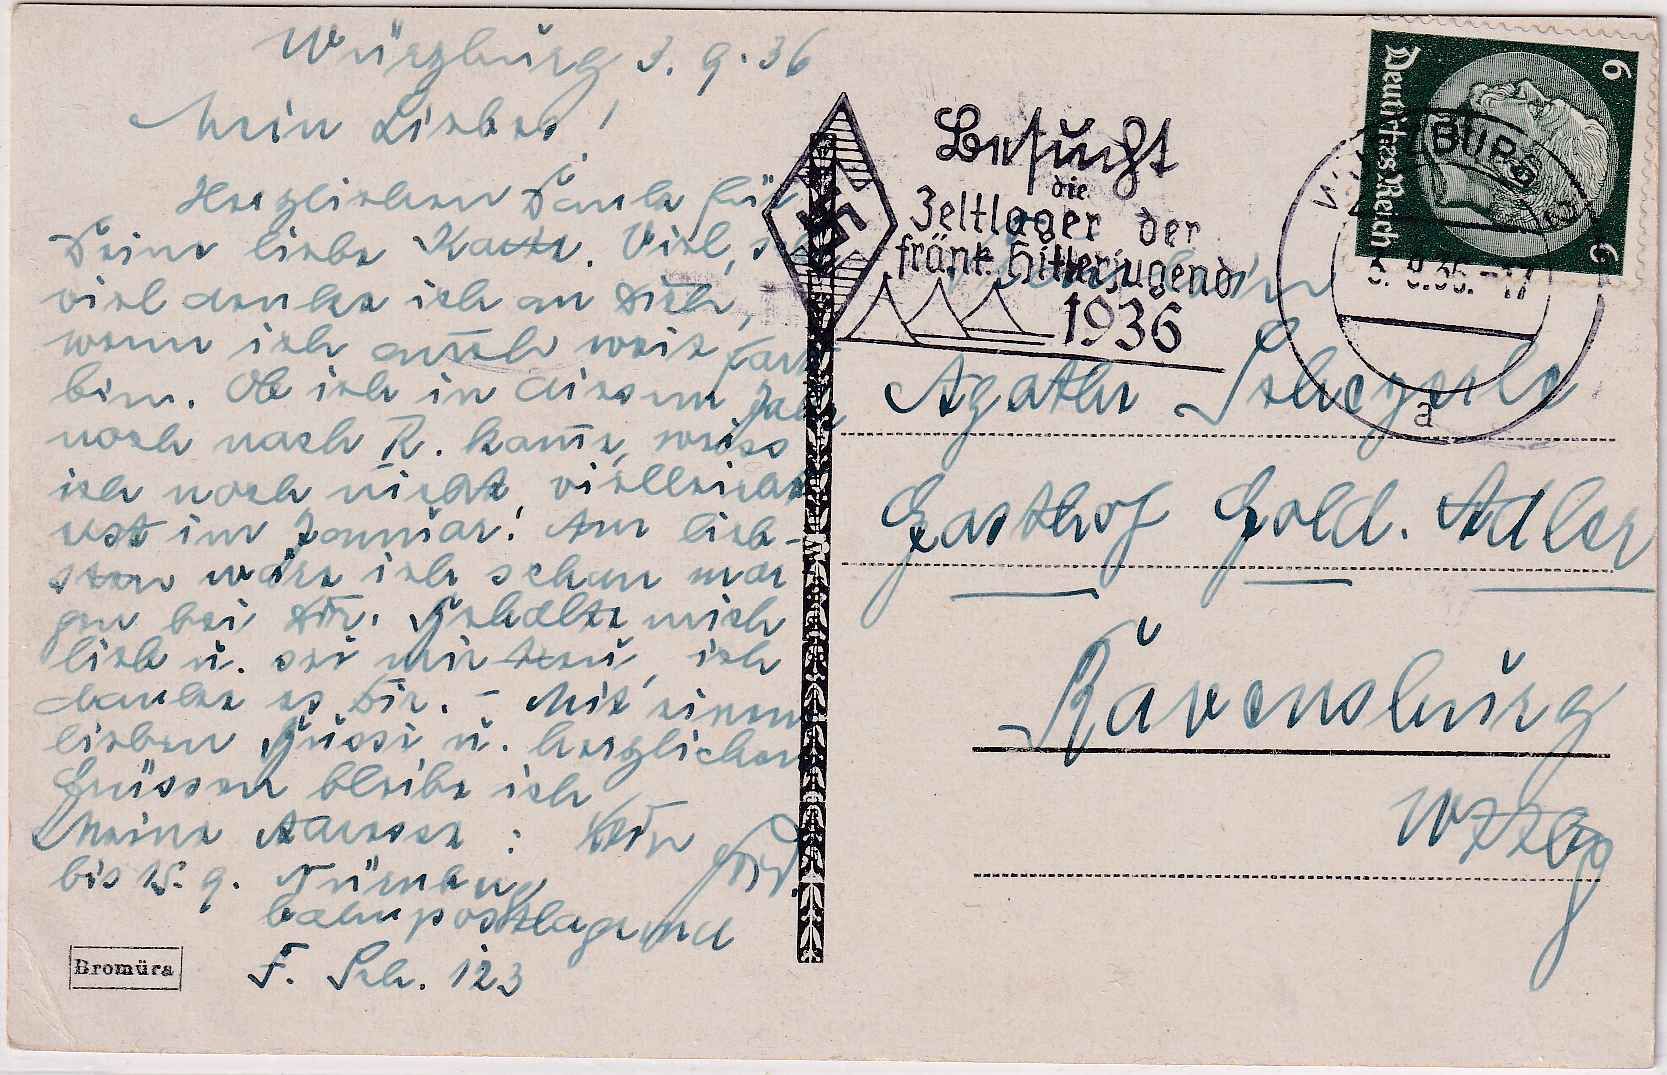 Würzburg 3.9.36
Mein Liebes!
Herzlichen Dank für
Deine liebe Karte. Viel, so
viel denke ich an Dich,
wenn ich auch weit fort
bin. Ob ich in diesem Jahr
noch nach R. komme, weiss
ich noch nicht, vielleicht
erst im Januar! Am lieb-
sten wäre ich schon mor
gen bei Dir. Behalte mich
lieb u. sei mir treu, ich
danke es Dir. – Mit einem
lieben Kusse u. herzlichen
Grüssen bleibe ich
Meine Adresse: Dein
bis 15.9. Nürnberg
bahnpostlagernd
F. Sch. 123
Bromüra
Besucht
die
Zeltlager der
fränk. Hitlerjugend
1936
WÜRZBURG
3.9.36.-17
a
Deutsches Reich
6
6
Fräulein
Agathe
Gasthof Gold. Adler
Ravensburg
Wttbg